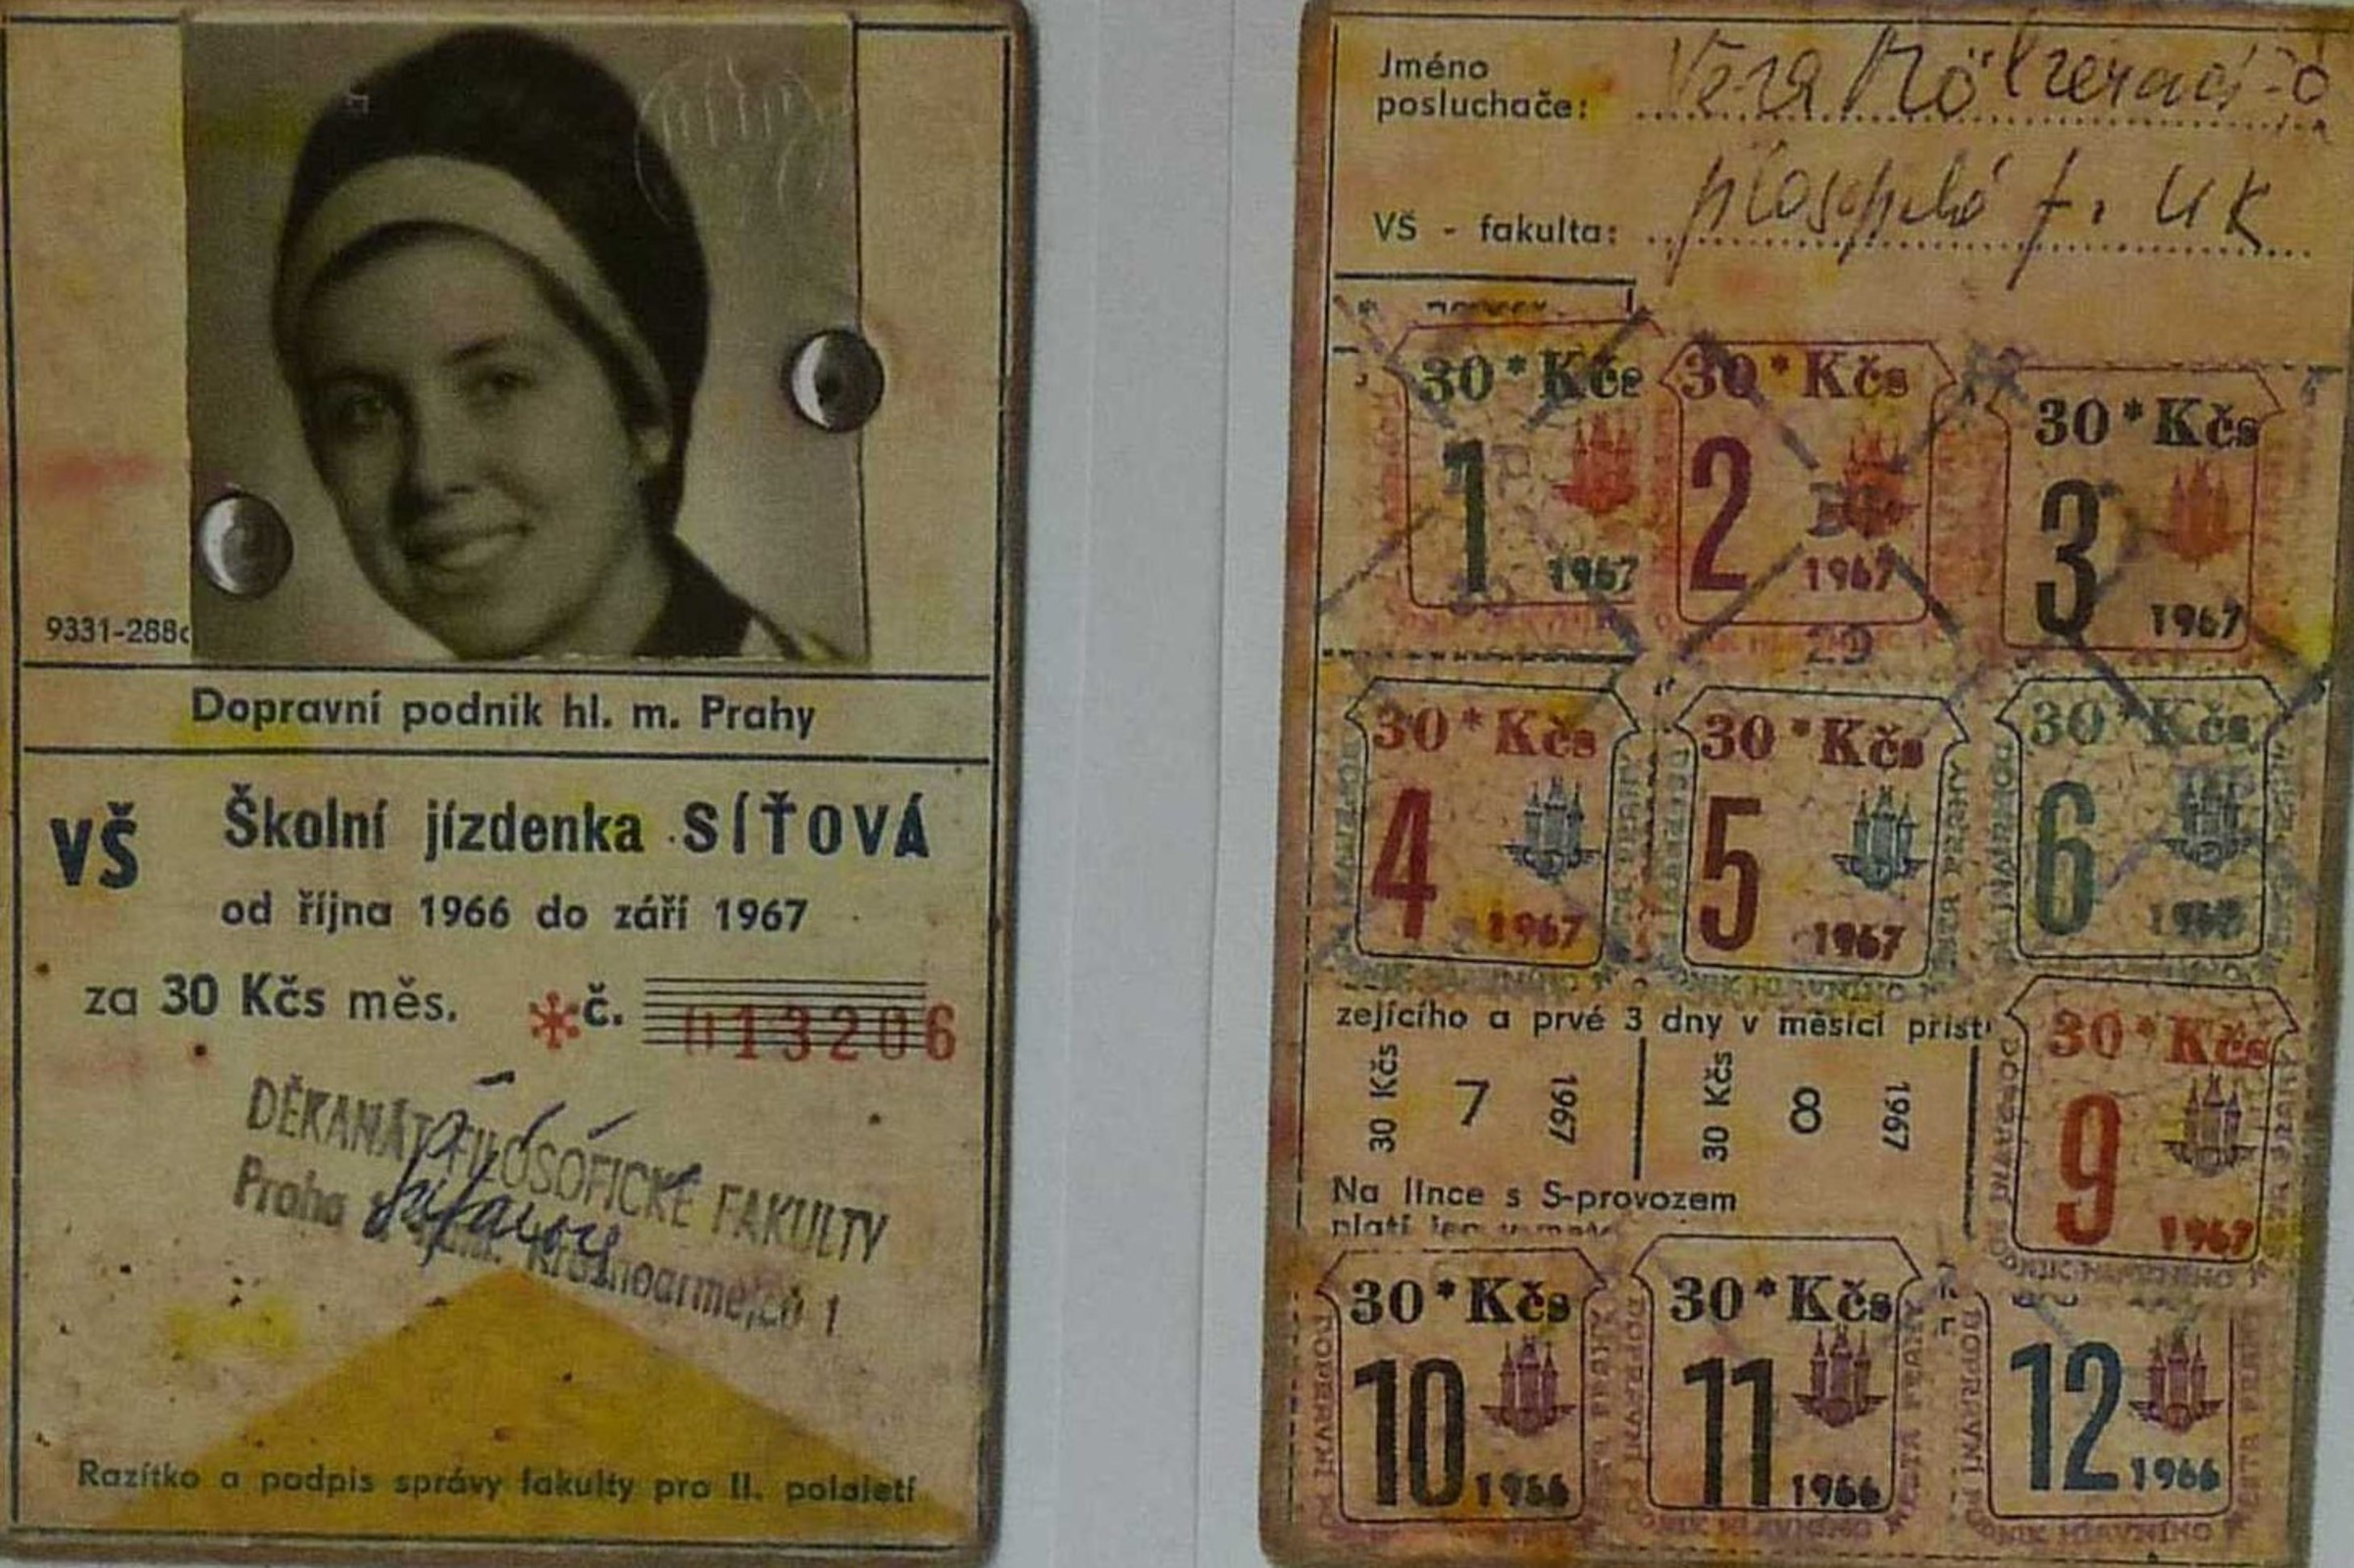 9331-288c
Dopravní podnik hl. m. Prahy
VŠ Školní jízdenka SÍŤOVÁ
od října 1966 do září 1967
za 30 Kčs měs. *č. 013206
DĚKANÁT FILOSOFICKÉ FAKULTY
Praha 1, nám. Krasnoarmejců 1
Razítko a podpis správy fakulty pro II. pololetí
Jméno
posluchače: Věra
VŠ - fakulta: f. UK
30*Kčs 30*Kčs 30*Kčs
1 2 3
1967 1967 1967
29
30*Kčs 30*Kčs 30*Kčs
4 5 6
1967 1967
zejícího a prvé 3 dny v měsíci příšt
30 Kčs 7 1967 30 Kčs 8 1967
30*Kčs
9
1967
Na lince s S-provozem
platí jen
30*Kčs 30*Kčs
10 11 12
1966 1966 1966